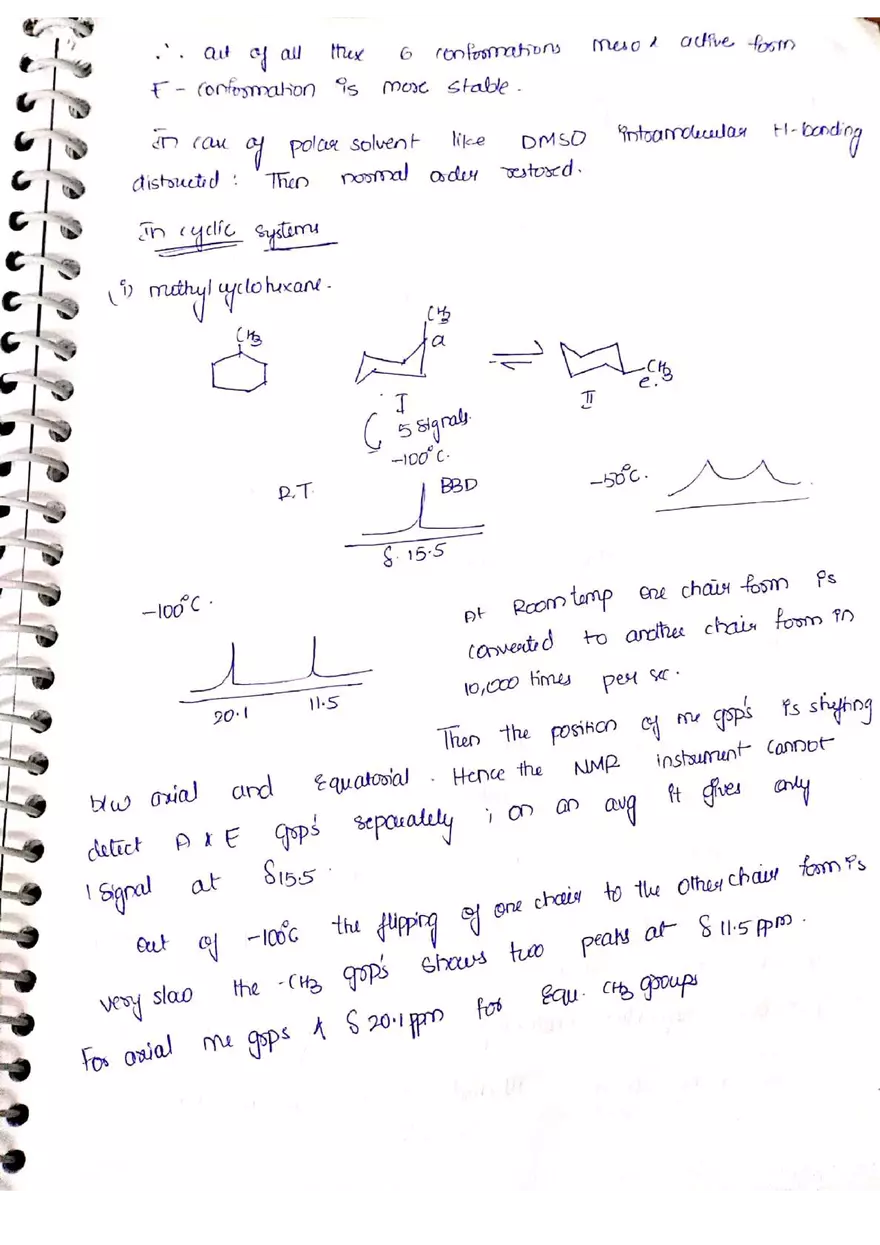 ∴ out of all thex 6 conformations meso & active form
F - conformation is more stable.
In case of polar solvent like DMSO intoamolecular H-bonding
distoucted : Then noomal order restored.
In cyclic systems
(i) methyl cyclohexane.
CH3
CH3
a
CH3
e.
I
II
5 signals.
-100°C.
R.T.
BBD
-50°C.
δ. 15.5
-100°C.
20.1
11.5
At Room temp one chair foom is
converted to another chair foom in
10,000 times per sec.
Then the position of me gops is shifting
b/w axial and Equatosial. Hence the NMR instoument cannot
detect A & E gops sepaualely ; on an avg it gives only
1 signal at δ15.5.
out of -100°C the flipping of one chair to the other chair foom is
very slao the -CH3 gops shows two peaks at δ 11.5 ppm.
Foo axial me gops & δ 20.1 ppm foo Equ. CH3 groups